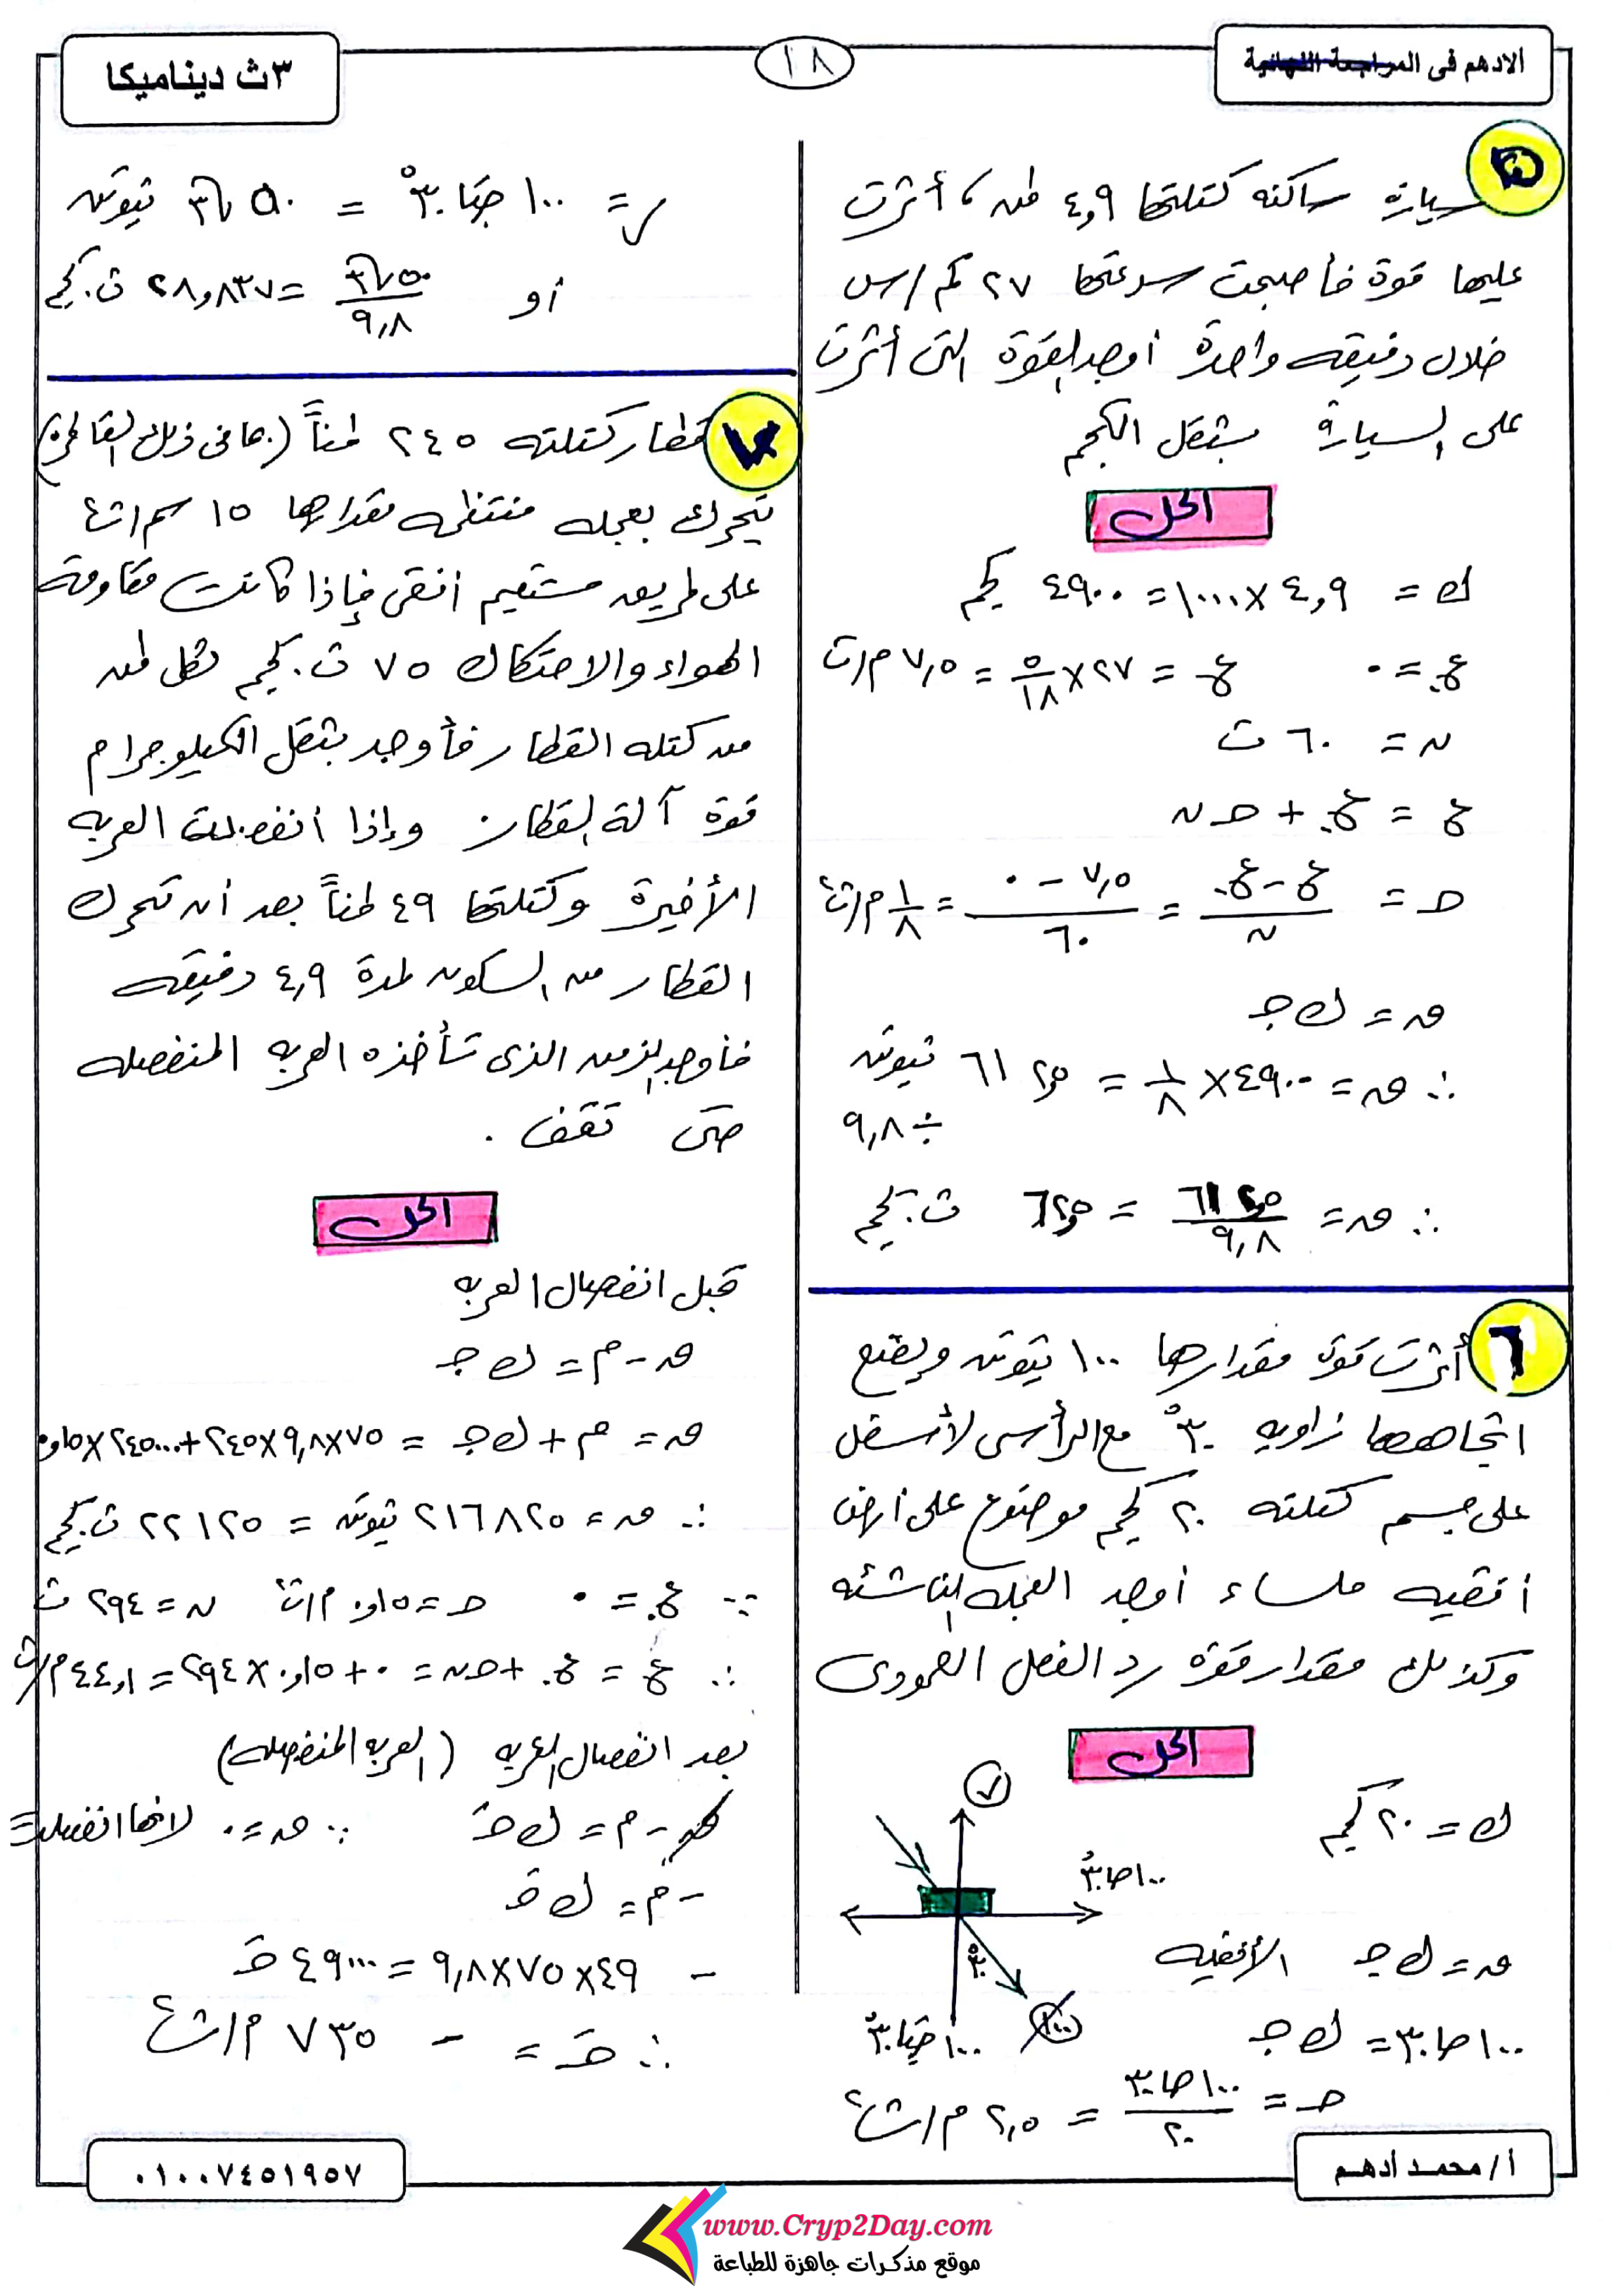 الادهم فى المراجعة النهائية
١٨
٣ث ديناميكا
٥ سيارة ساكنه كتلتها ٤,٩ طن ، أثرت
عليها قوة فأصبحت سرعتها ٢٧ كم/س
خلال دقيقه واحدة أوجد القوة التى أثرت
على السيارة بثقل الكجم
الحل
ك = ٤,٩ × ١٠٠٠ = ٤٩٠٠ كجم
ع. = ٠ ع = ٢٧ × ٥/١٨ = ٧,٥ م/ث
ن = ٦٠ ث
ع = ع. + حـ ن
حـ = (ع - ع.)/ن = (٧,٥ - ٠)/٦٠ = ١/٨ م/ث²
ق = ك جـ
∴ ق = ٤٩٠٠ × ١/٨ = ٦١٢,٥ نيوتن
÷ ٩,٨
∴ ق = ٦١٢,٥/٩,٨ = ٦٢,٥ ث.كجم
٦ أثرت قوة مقدارها ١٠٠ نيوتن ويصنع
اتجاهها زاويه ٣٠° مع الرأسى لأسفل
على جسم كتلته ٢٠ كجم موضوع على أرض
أفقيه ملساء أوجد العجله الناشئه
وكذلك مقدار قوة رد الفعل العمودى
الحل
ك = ٢٠ كجم
ر
١٠٠ حا ٣٠°
٣٠°
١٠٠
١٠٠ حتا ٣٠°
ق = ك جـ الأفقيه
١٠٠ حا ٣٠ = ك جـ
حـ = ١٠٠ حا ٣٠/٢٠ = ٢,٥ م/ث²
ر = ١٠٠ حتا ٣٠° = ٥٠ √٣ نيوتن
أو ٥٠√٣/٩,٨ = ٢٨,٨٣٧ ث.كجم
٧ قطار كتلته ٢٤٥ طناً (بما فى ذلك القاطرة)
يتحرك بعجله منتظمه مقدارها ١٥ سم/ث²
على طريق مستقيم أفقى فإذا كانت مقاومة
الهواء والاحتكاك ٧٥ ث.كجم لكل طن
من كتله القطار فأوجد بثقل الكيلوجرام
قوة آلة القطار وإذا انفصلت العربه
الأخيرة وكتلتها ٤٩ طناً بعد أن تحرك
القطار من السكون لمدة ٤,٩ دقيقه
فأوجد الزمن الذى تأخذه العربه المنفصله
حتى تقف .
الحل
قبل انفصال العربه
ق - م = ك جـ
ق = م + ك جـ = ٧٥×٩,٨×٢٤٥ + ٢٤٥٠٠٠×٠,١٥
∴ ق = ٢١٦٨٢٥ نيوتن = ٢٢١٢٥ ث.كجم
∵ ع. = ٠ حـ = ٠,١٥ م/ث² ن = ٢٩٤ ث
∴ ع = ع. + حـ ن = ٠ + ٠,١٥ × ٢٩٤ = ٤٤,١ م/ث
بعد انفصال العربه (العربه المنفصله)
ق - م = ك حـَ ∵ ق = ٠ لانها انفصلت
- م = ك حـَ
- ٤٩×٧٥×٩,٨ = ٤٩٠٠٠ حـَ
∴ حـَ = - ٧٣٥ م/ث²
أ / محمد أدهم
٠١٠٠٧٤٥١٩٥٧
www.Cryp2Day.com
موقع مذكرات جاهزة للطباعة